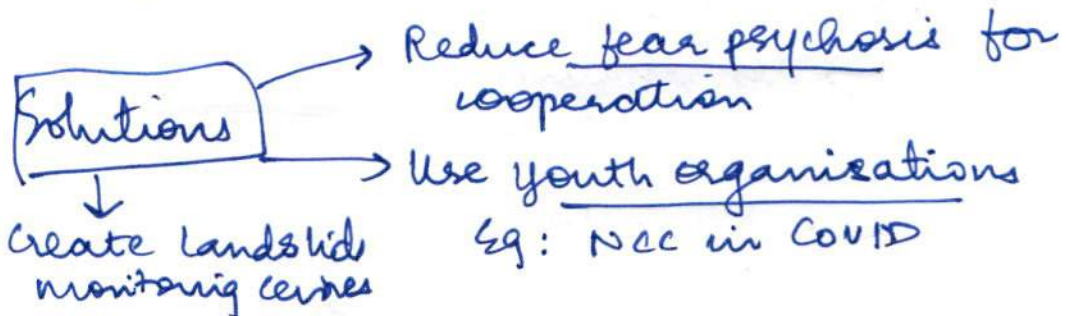 Solutions
Reduce fear psychosis for
cooperation
Use youth organisations
Eg: NCC in COVID
Create Landslid
monitoring centres